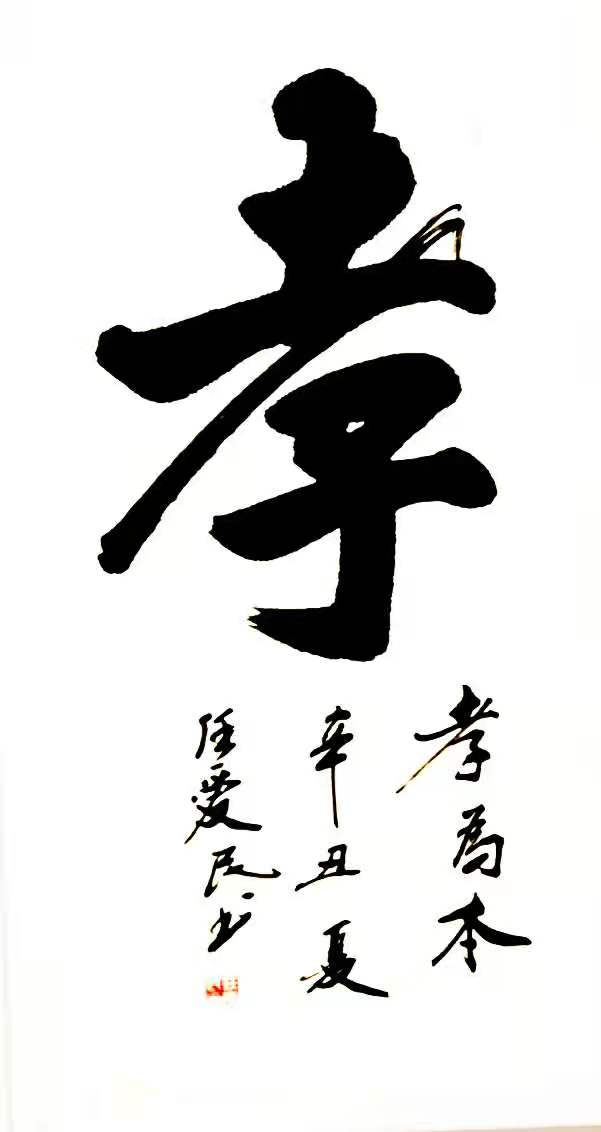 孝
孝為本
辛丑夏
任愛民书